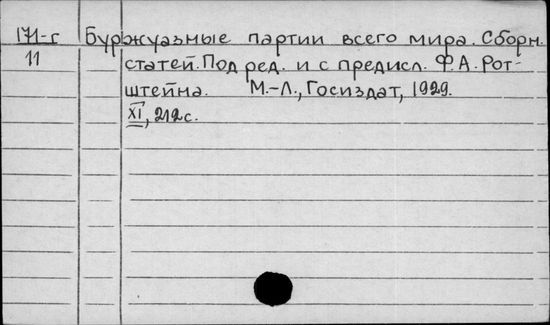 171-г Буржуазные партии всего мира. Сборн.
11 статей. Под ред. и с предисл. Ф.А. Рот-
штейна. М.-Л., Госиздат, 1929.
XI, 212 с.